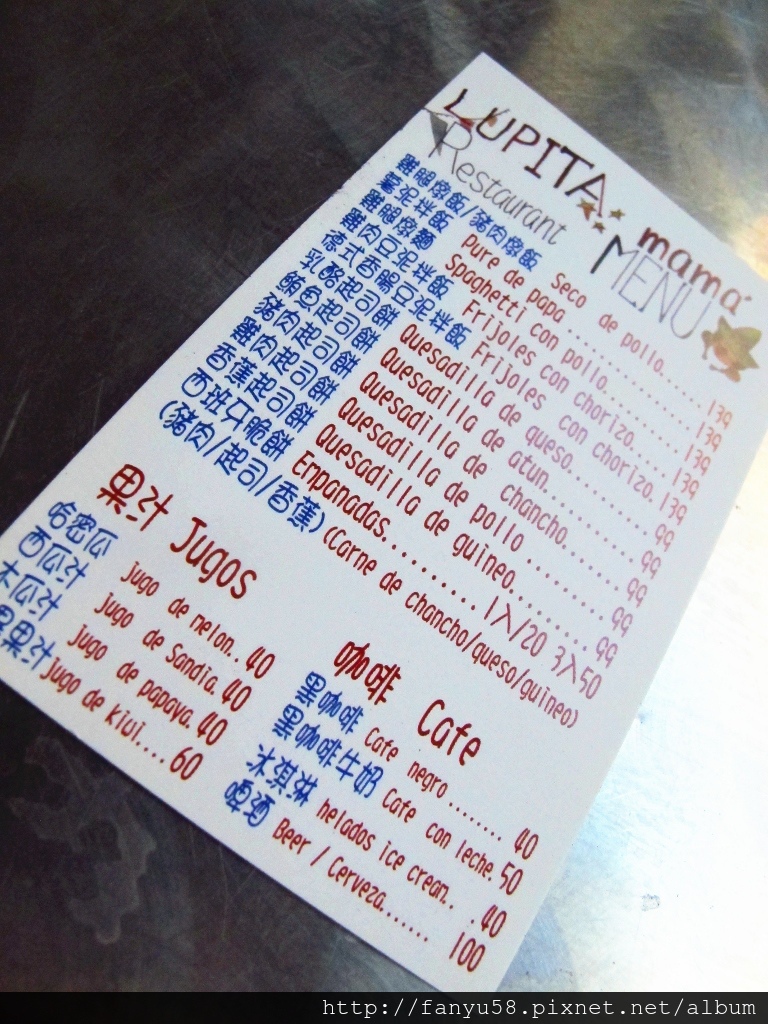 LUPITA mamá
Restaurant MENU
雞腿燉飯/豬肉燉飯 Seco de pollo......139
薯泥拌飯 Pure de papa...............139
雞腿燉麵 Spaghetti con pollo..........139
雞肉豆泥拌飯 Frijoles con chorizo.....139
德式香腸豆泥拌飯 Frijoles con chorizo.139
乳酪起司餅 Quesadilla de queso........99
鮪魚起司餅 Quesadilla de atun.........99
豬肉起司餅 Quesadilla de chancho......99
雞肉起司餅 Quesadilla de pollo.........99
香蕉起司餅 Quesadilla de guineo........99
西班牙脆餅 Empanadas..........1入/20 3入50
(豬肉/起司/香蕉) (Carne de chancho/queso/guineo)
果汁 Jugos
哈密瓜 jugo de melon..40
西瓜汁 jugo de Sandia.40
木瓜汁 jugo de papaya.40
果汁 jugo de kiui....60
咖啡 Cafe
黑咖啡 Cafe negro........40
黑咖啡牛奶 Cafe con leche.50
冰淇淋 helados ice cream...40
啤酒 Beer / Cerveza......100
http://fanyu58.pixnet.net/album